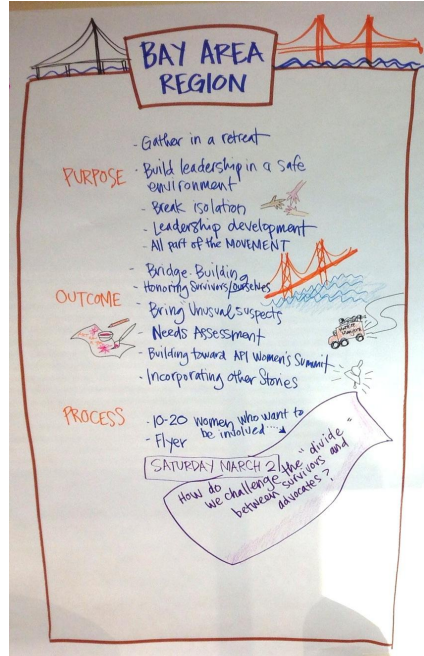 BAY AREA
REGION
- Gather in a retreat
PURPOSE
- Build leadership in a safe
environment
- Break isolation
- Leadership development
- All part of the MOVEMENT
- Bridge Building
- Honoring Survivors/ourselves
OUTCOME
- Bring "Unusual suspects
- Needs Assessment
- Building toward API Women's Summit
- Incorporating other Stories
PROCESS
- 10-20 women who want to
be involved....
- Flyer
SATURDAY MARCH 2
How do
we challenge the "divide"
between survivors and
advocates?